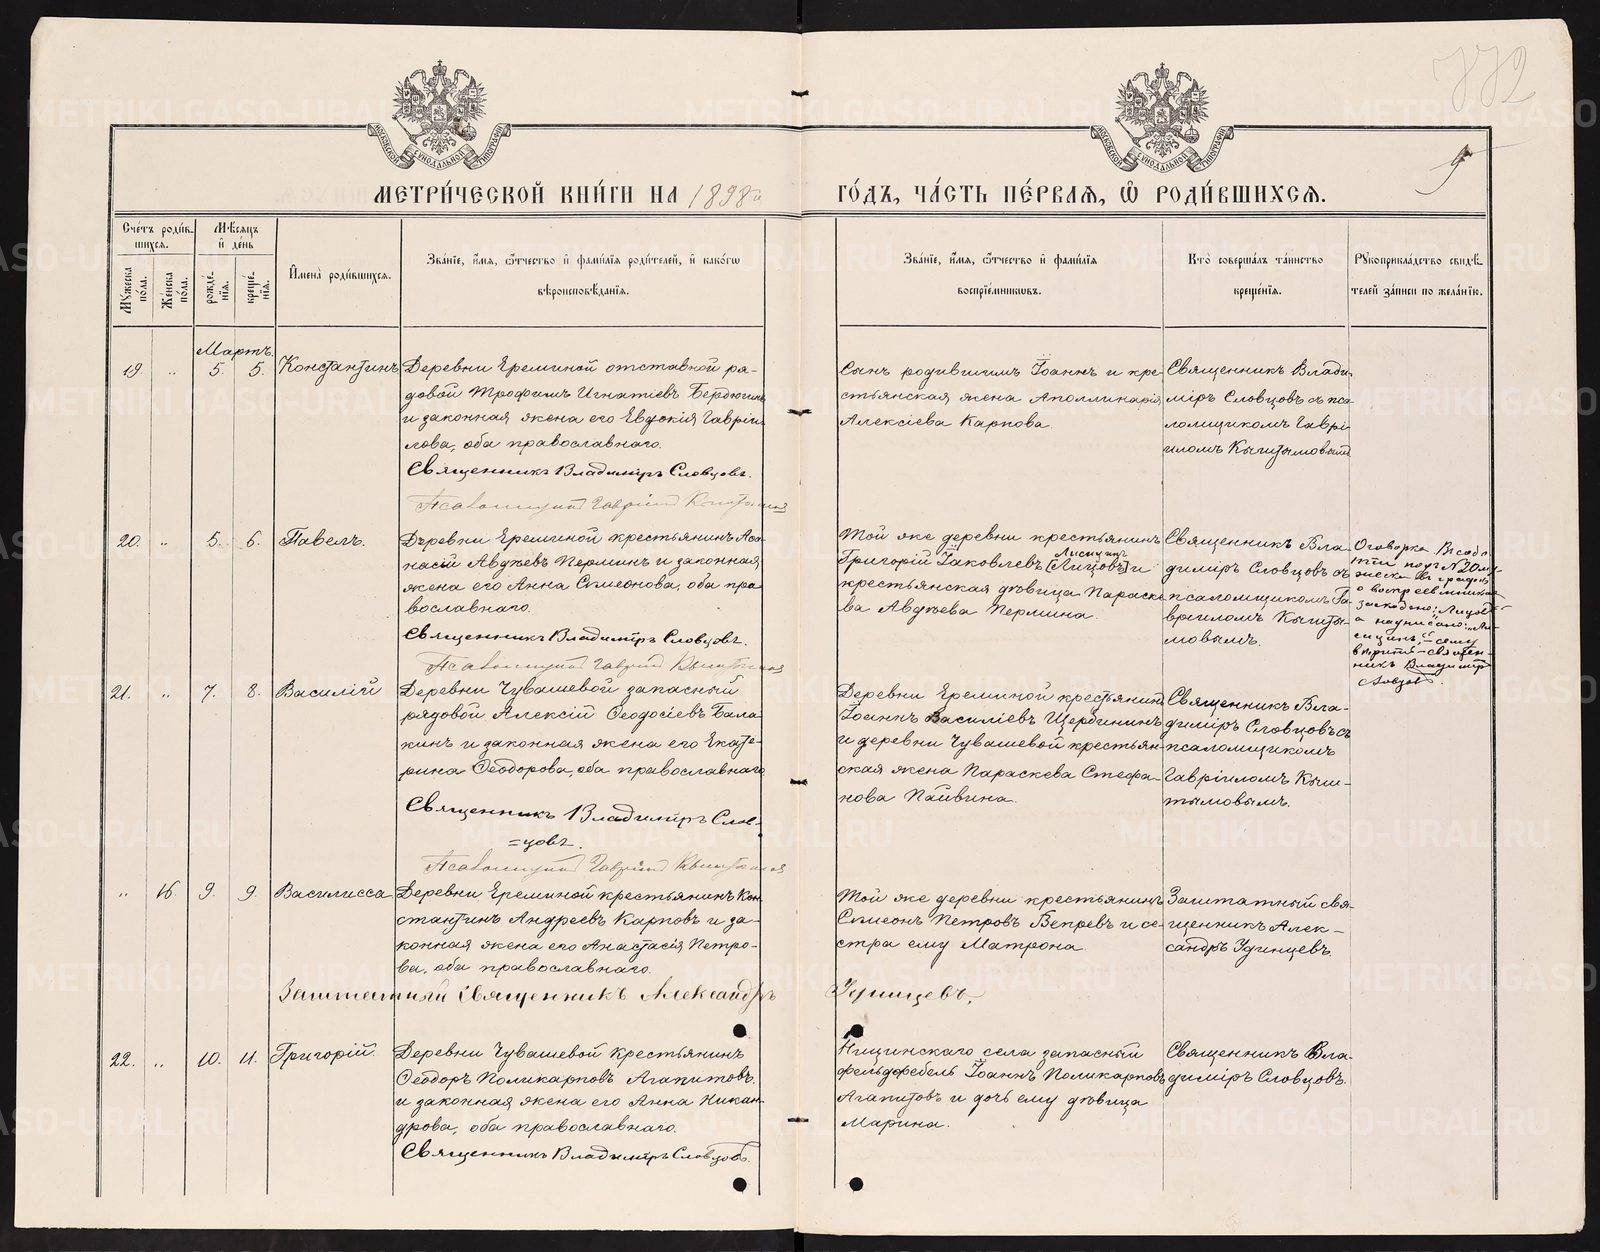 772
9
МОСКОВСКОЙ СѴНОДАЛЬНОЙ ТИПОГРАФІИ
МОСКОВСКОЙ СѴНОДАЛЬНОЙ ТИПОГРАФІИ
МЕТРИ́ЧЕСКОЙ КНИ́ГИ НА 1898й ГО́ДЪ, ЧА́СТЬ ПЕ́РВАЯ, Ѽ РОДИ́ВШИХСЯ.
Сче́тъ роди́вшихся.
Мꙋжеска по́ла.
Же́нска по́ла.
Мѣ́сяцъ и҆ де́нь
рожде́нїя.
креще́нїя.
И҆мена̀ роди́вшихся.
Зва́нїе, и҆́мя, ѻ҆́тчество и҆ фами́лїя роди́телей, и҆ како́гѡ
вѣроисповѣ́данїя.
Зва́нїе, и҆́мя, ѻ҆́тчество и҆ фами́лїя
воспрїе́мникѡвъ.
Кто̀ соверша́лъ та́инство
креще́нїя.
Рꙋкоприкла́дство свидѣ́-
телей за́писи по жела́нїю.
Мартъ.
19. „ 5. 5. Константинъ
Деревни Ереминой отставной ря-
довой Трофимъ Игнатіевъ Бердюгинъ
и законная жена его Евдокія Гаврі-
лова, оба православнаго.
Священникъ Владиміръ Словцовъ.
Псаломщикъ Гавріилъ
Сынъ родившимъ Іоаннъ и кре-
стьянская жена Аполлинарія
Алексіева Карпова.
Священникъ Влади-
міръ Словцовъ съ пса-
ломщикомъ Гаврі-
иломъ Кыштымовымъ
20. „ 5. 6. Павелъ.
Деревни Ереминой крестьянинъ Аѳа-
насій Авдѣевъ Перминъ и законная
жена его Анна Симеонова, оба пра-
вославнаго.
Священникъ Владиміръ Словцовъ.
Псаломщикъ Гавріилъ
Той же деревни крестьянинъ
Лисицинъ
Григорій Іаковлевъ [Лицовъ] и
крестьянская дѣвица Параске-
ва Авдѣева Пермина.
Священникъ Вла-
диміръ Словцовъ съ
псаломщикомъ Га-
вріиломъ Кышты-
мовымъ.
Оговорка
подъ № 20 му-
жеска въ графѣ
о воспріемникахъ
а надписано: „Ли-
сицинъ“, – сему
вѣрить – священ-
никъ Владиміръ
Словцовъ.
21. „ 7. 8. Василій
Деревни Чувашевой запасный
рядовой Алексій Ѳеодосіевъ Бала-
кинъ и законная жена его Екате-
рина Ѳеодорова, оба православнаго
Священникъ Владиміръ Слов-
=цовъ.
Псаломщикъ Гавріилъ
Деревни Ереминой крестьянинъ
Іоаннъ Василіевъ Щербининъ
и деревни Чувашевой крестьян-
ская жена Параскева Стефа-
нова Пайвина.
Священникъ Вла-
диміръ Словцовъ съ
псаломщикомъ
Гавріиломъ Кыш-
тымовымъ.
„ 16. 9. 9. Василисса
Деревни Ереминой крестьянинъ Кон-
стантинъ Андреевъ Карповъ и за-
конная жена его Анастасія Петро-
ва, оба православнаго.
Той же деревни крестьянинъ
Симеонъ Петровъ Вепревъ и се-
стра ему Матрона
Заштатный свя-
щенникъ Алек-
сандръ Удинцевъ.
Заштатный священникъ Александръ Удинцевъ.
22. „ 10. 11. Григорій.
Деревни Чувашевой крестьянинъ
Ѳеодоръ Поликарповъ Агапитовъ
и законная жена его Анна Никан-
дрова, оба православнаго.
Священникъ Владиміръ Словцовъ.
Ницинскаго села запасный
фельдфебель Іоаннъ Поликарповъ
Агапитовъ и дочь ему дѣвица
Марина.
Священникъ Вла-
диміръ Словцовъ.
METRIKI.GASO-URAL.RU